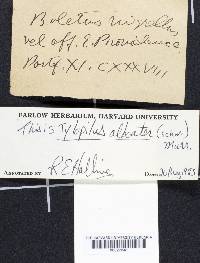 Boletus nigrellus
vel aff. E. Providence
Portf. XI. CXXXVIII
FARLOW HERBARIUM, HARVARD UNIVERSITY
This is Tylopilus alboater (Schw.)
Murr.
ANNOTATED BY R E Halling Date: